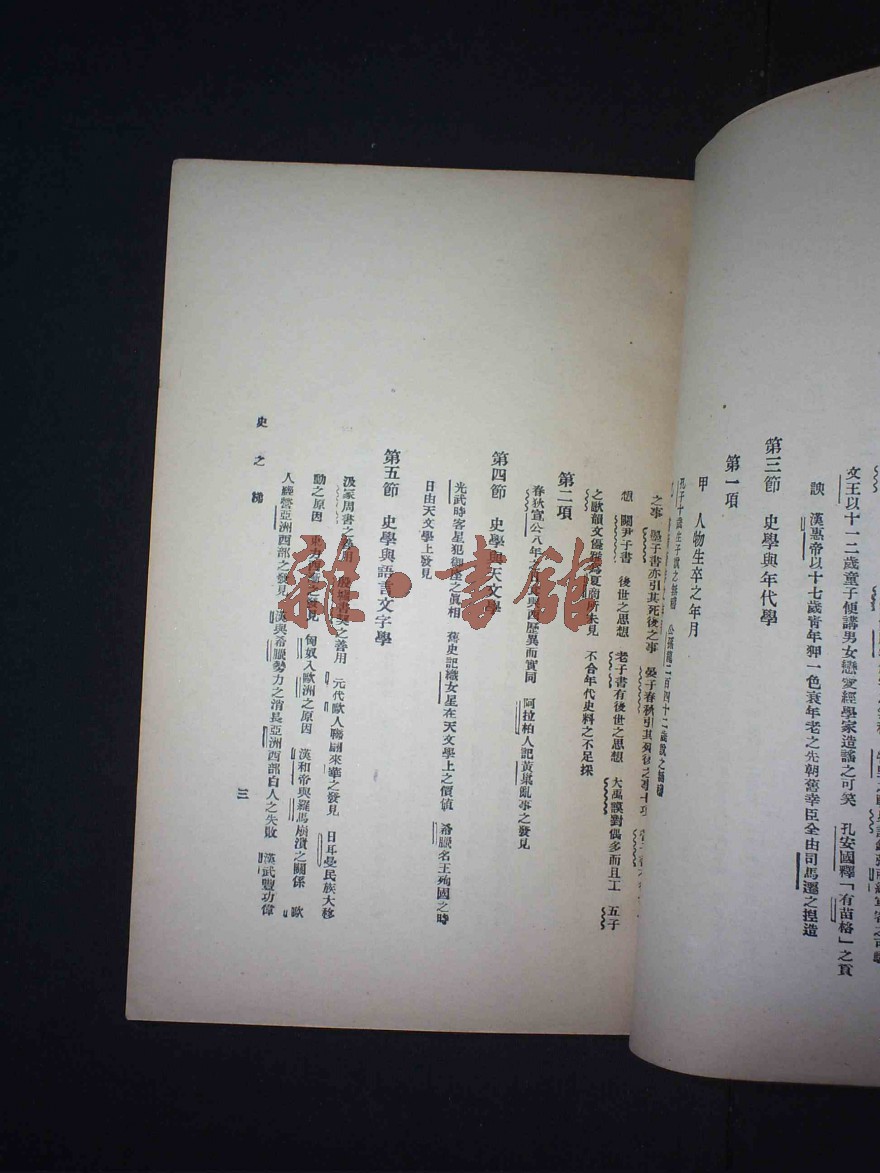 文王以十二歲童子便講男女戀愛經學家造謠之可笑　孔安國釋「有苗格」之貢
諛　漢惠帝以十七歲青年狎一色衰年老之先朝舊幸臣全由司馬遷之捏造
第三節　史學與年代學
第一項
甲　人物生卒之年月
孔子十歲生子說之　公孫龍二百四十二歲說之
之事　墨子書亦引其死後之事　晏子春秋引其死後之事十項
想　關尹子書　後世之思想　老子書有後世之思想　大禹謨對偶多而且工　五子
之歌韻文優雅為夏商所未見　不合年代史料之不足採
第二項
春秋宣公八年之日食與西歷異而實同　阿拉柏人記黃巢亂事之發見
第四節　史學與天文學
光武時客星犯御座之眞相　舊史記織女星在天文學上之價値　希臘名王殉國之時
日由天文學上發見
第五節　史學與語言文字學
汲冢周書之善用　殷墟書契之善用　元代歐人聯翩來華之發見　日耳曼民族大移
動之原因　東方西漸之發見　匈奴入歐洲之原因　漢和帝與羅馬崩潰之關係　歐
人經營亞洲西部之發見　漢與希臘勢力之消長亞洲西部白人之失敗　漢武豐功偉
史之梯
三
雜·書館